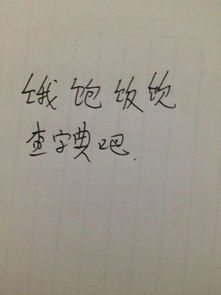 饿饱饭饮
查字典吧.